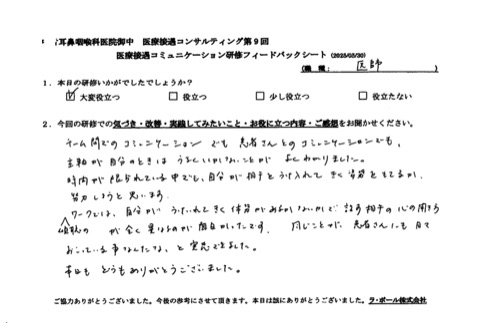 耳鼻咽喉科医院御中　医療接遇コンサルティング第９回
医療接遇コミュニケーション研修フィードバックシート（2025/03/30）
（職 種： 医師 ）
１．本日の研修いかがでしたでしょうか？
☑ 大変役立つ　□ 役立つ　□ 少し役立つ　□ 役立たない
２．今回の研修での気づき・改善・実践してみたいこと・お役に立つ内容・ご感想をお聞かせください。
チーム間でのコミュニケーションでも患者さんとのコミュニケーションでも、
主軸が自分のときはうまくいかないことがよくわかりました。
時間が限られている中でも、自分が相手をうけ入れてきく姿勢をもてるか、
努力しようと思います。
ワークでは、自分がうけいれてきく体勢があるかないかで話す相手の心の開き
が全く異なるのが面白かったです。同じことが、患者さんにも
おこっている事なんだな、と実感できました。
本日もどうもありがとうございました。
ご協力ありがとうございました。今後の参考にさせて頂きます。本日は誠にありがとうございました。ラ・ポール株式会社